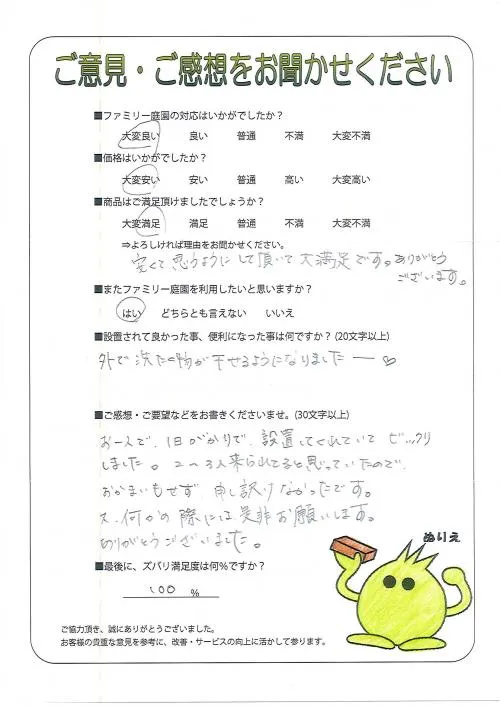 ご意見・ご感想をお聞かせください
■ファミリー庭園の対応はいかがでしたか？
大変良い 良い 普通 不満 大変不満
■価格はいかがでしたか？
大変安い 安い 普通 高い 大変高い
■商品はご満足頂けましたでしょうか？
大変満足 満足 普通 不満 大変不満
⇒よろしければ理由をお聞かせください。
安くて思うようにして頂いて大満足です。ありがとう
ございます。
■またファミリー庭園を利用したいと思いますか？
はい どちらとも言えない いいえ
■設置されて良かった事、便利になった事は何ですか？(20文字以上)
外で洗たく物が干せるようになりました──♡
■ご感想・ご要望などをお書きくださいませ。(30文字以上)
お一人で、1日がかりで、設置してくれていてビックリ
しました。2〜3人来られてると思っていたので、
おかまいもせず、申し訳けなかったです。
又、何かの際には是非お願いします。
ありがとうございました。
ぬりえ
■最後に、ズバリ満足度は何%ですか？
100 %
ご協力頂き、誠にありがとうございました。
お客様の貴重な意見を参考に、改善・サービスの向上に活かして参ります。